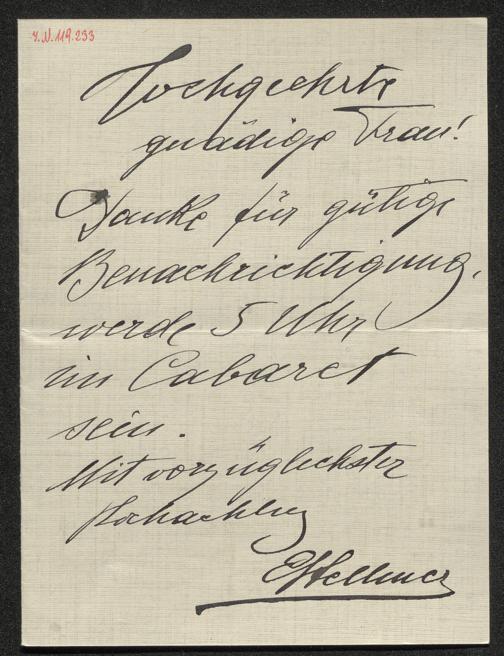 I.N. 119.233
Hochgeehrte
gnädige Frau!
Danke für gütige
Benachrichtigung,
werde 5 Uhr
im Cabaret
sein.
Mit vorzüglichster
Hochachtung